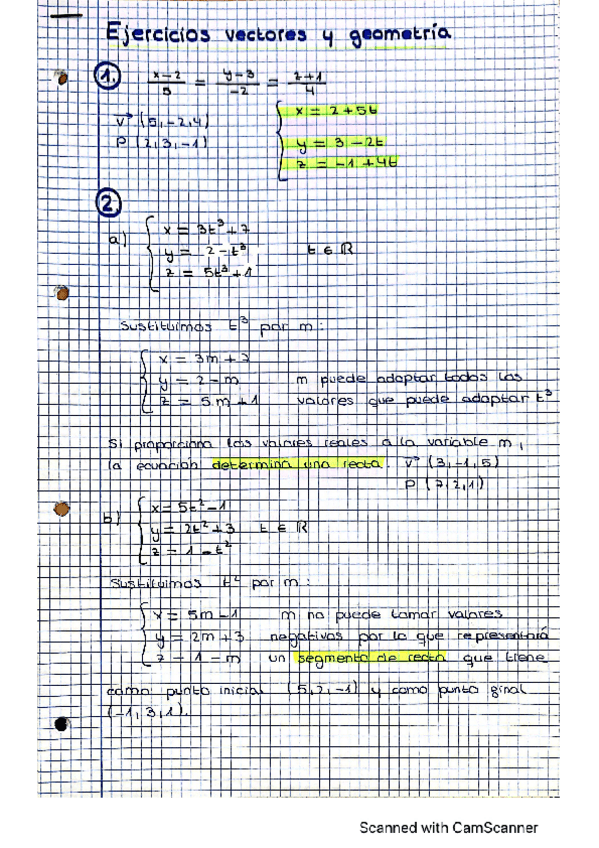 Ejercicios vectores y geometría
1. x-2/5 = y-3/-2 = z+1/4
v⃗ (5,-2,4)
P (2,3,-1)
x = 2+5t
y = 3-2t
z = -1+4t
2.
a) x = 3t³+7
y = 2-t³ t ∈ ℝ
z = 5t³+1
Sustituimos t³ por m:
x = 3m+7
y = 2-m m puede adoptar todos los
z = 5m+1 valores que puede adoptar t³
Si proporciona los valores reales a la variable m,
la ecuación determina una recta. v⃗ (3,-1,5)
P (7,2,1)
b) x = 5t²-1
y = 2t²+3 t ∈ ℝ
z = 1-t²
Sustituimos t² por m:
x = 5m-1 m no puede tomar valores
y = 2m+3 negativos por lo que representará
z = 1-m un segmento de recta que tiene
como punto inicial (5,2,-1) y como punto ginal
(-1,3,1).
Scanned with CamScanner